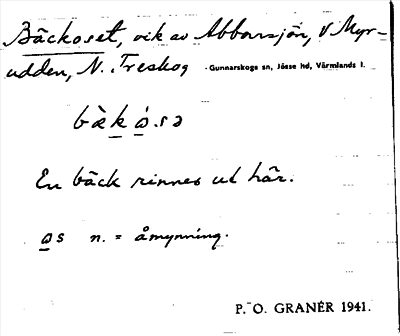 Bäckoset, vik av Abborsjön, V Myr-
udden, N. Treskog Gunnarskogs sn, Jösse hd, Värmlands l.
bὰk ά.sə
En bäck rinner ut här.
os n. = åmynning.
P. O. GRANÉR 1941.